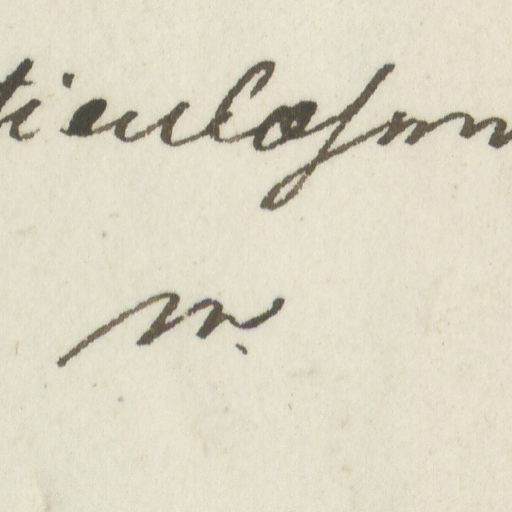 ticulosum
m.